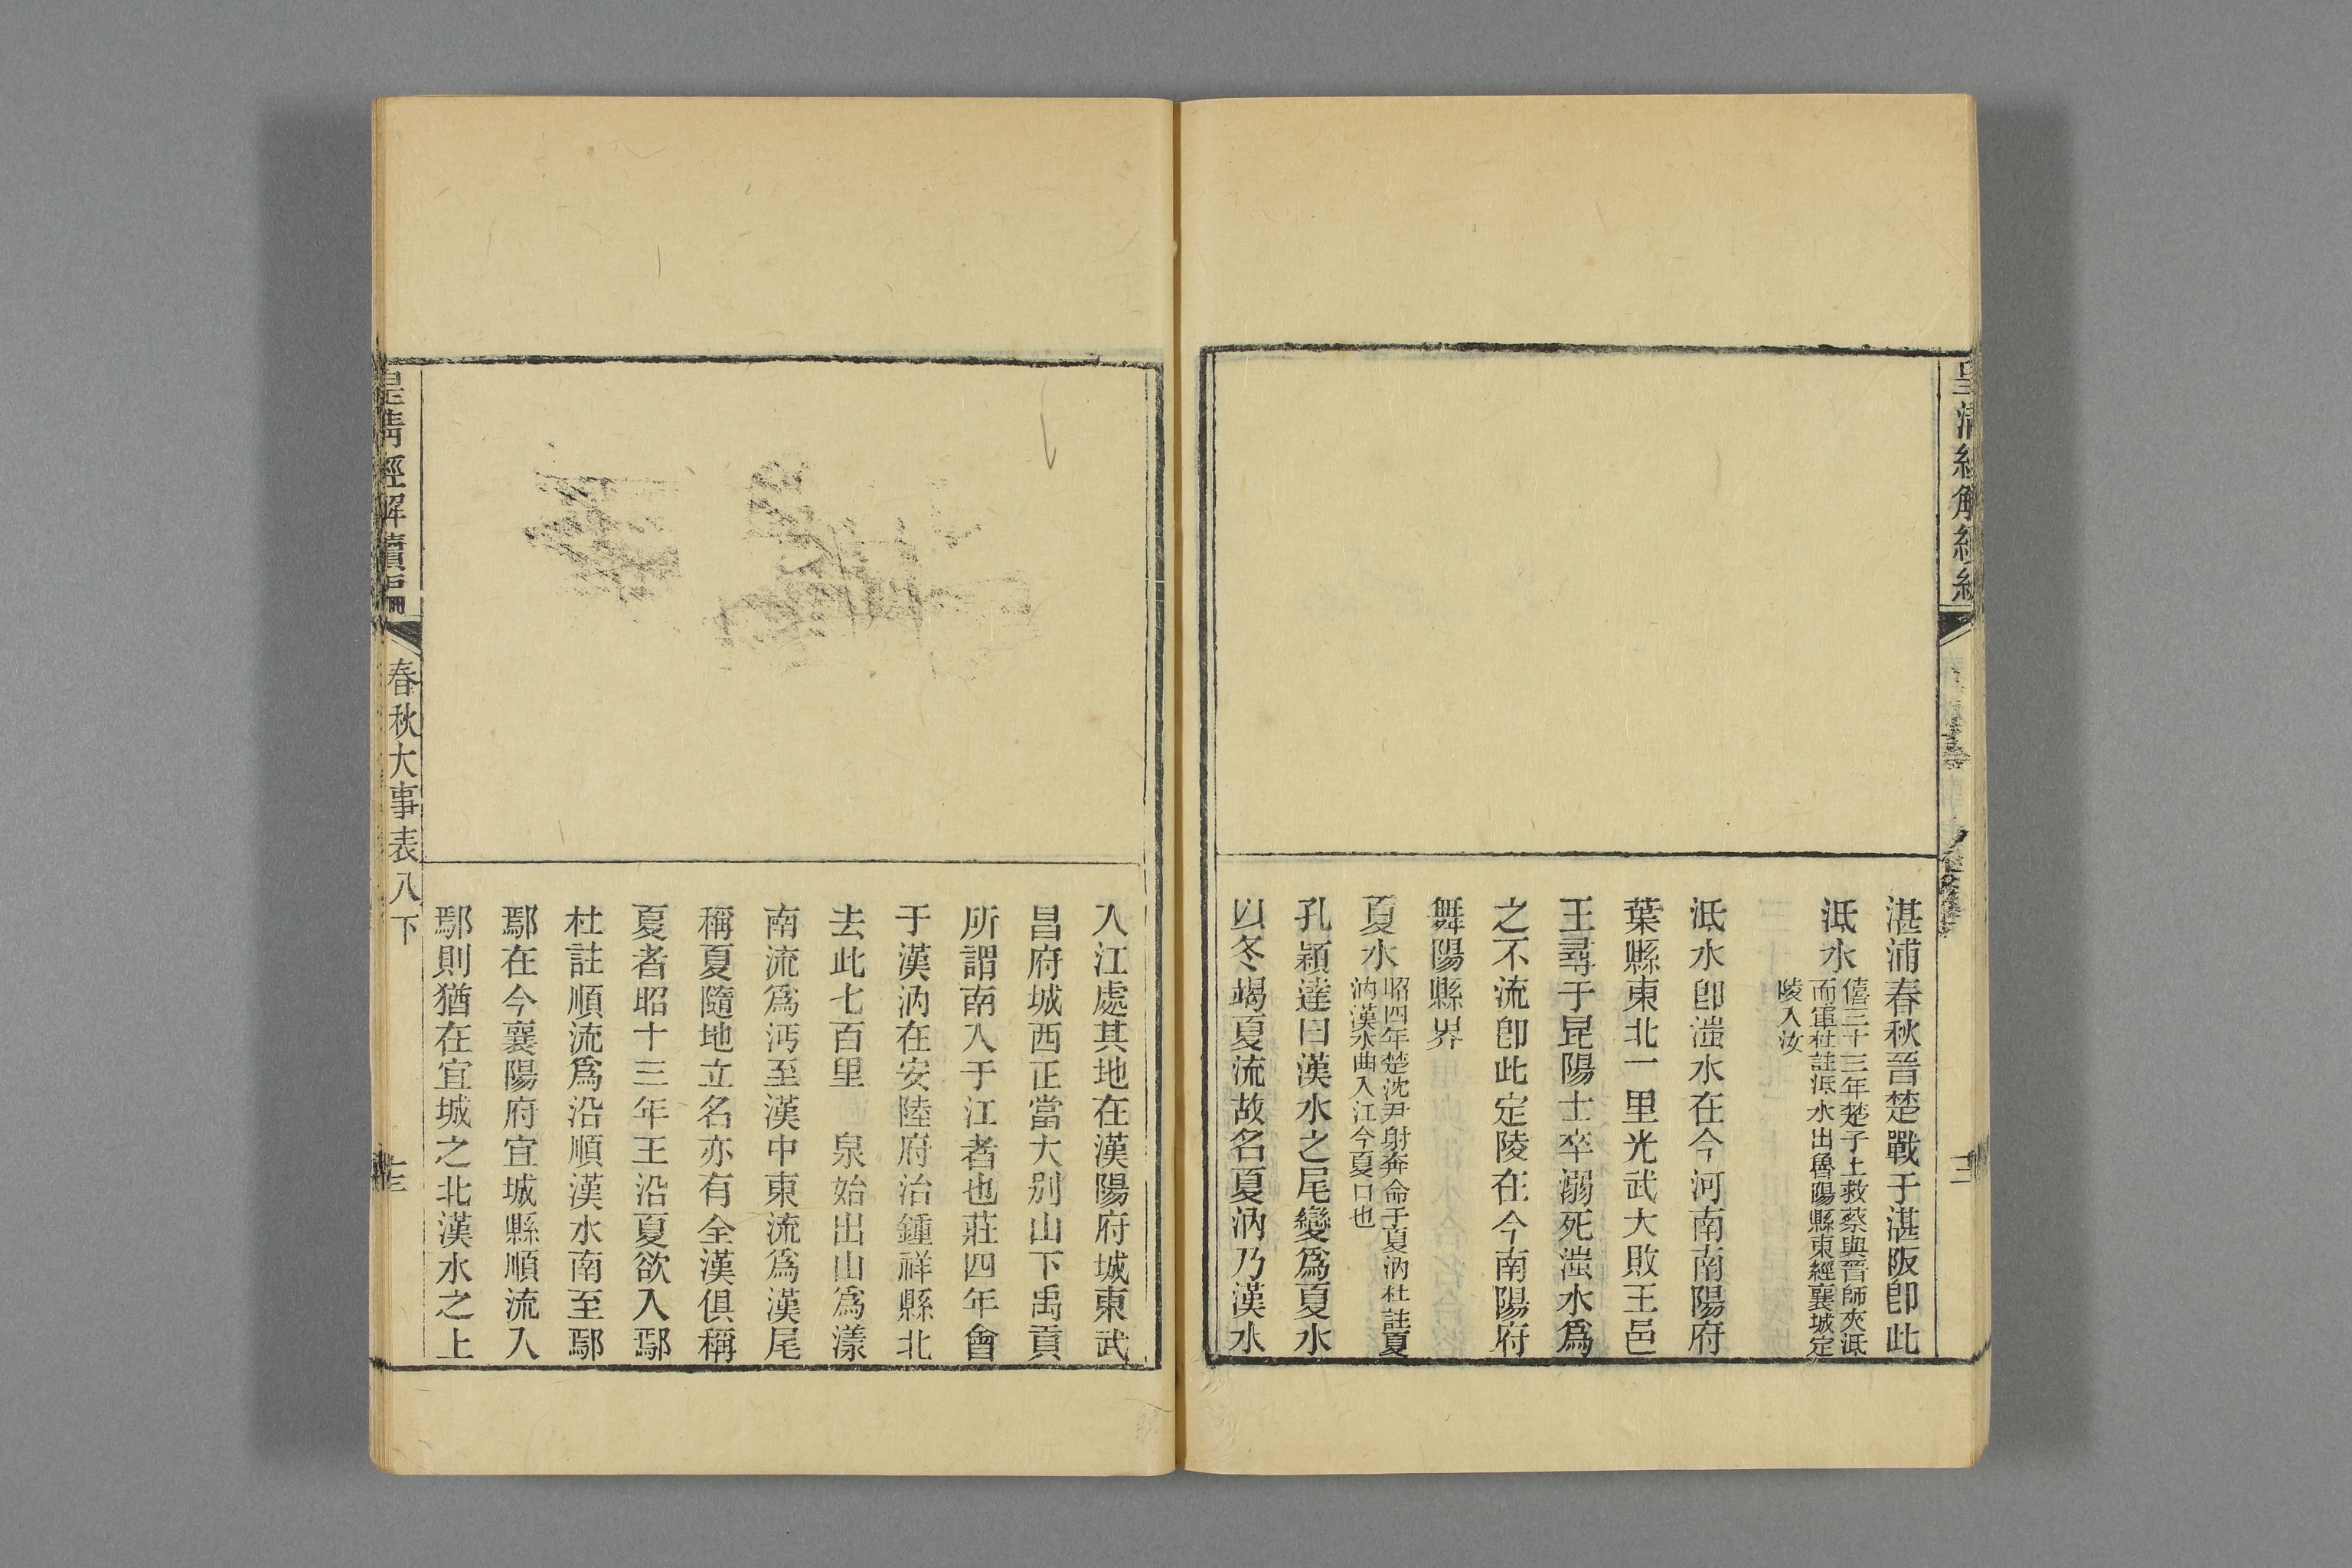 湛浦春秋晉楚戰于湛阪卽此
泜水
僖三十三年楚子上救蔡與晉師夾泜
而軍杜註泜水出魯陽縣東經襄城定
陵入汝
泜水卽滍水在今河南南陽府
葉縣東北一里光武大敗王邑
王尋于昆陽士卒溺死滍水爲
之不流卽此定陵在今南陽府
舞陽縣界
夏水
昭四年楚沈尹射奔命于夏汭杜註夏
汭漢水曲入江今夏口也
孔穎達曰漢水之尾變爲夏水
以冬竭夏流故名夏汭乃漢水
入江處其地在漢陽府城東武
昌府城西正當大别山下禹貢
所謂南入于江者也莊四年會
于漢汭在安陸府治鍾祥縣北
去此七百里 泉始出山爲漾
南流爲沔至漢中東流爲漢尾
稱夏隨地立名亦有全漢俱稱
夏者昭十三年王沿夏欲入鄢
杜註順流爲沿順漢水南至鄢
鄢在今襄陽府宜城縣順流入
鄢則猶在宜城之北漢水之上
皇清經解續編
春秋大事表八下